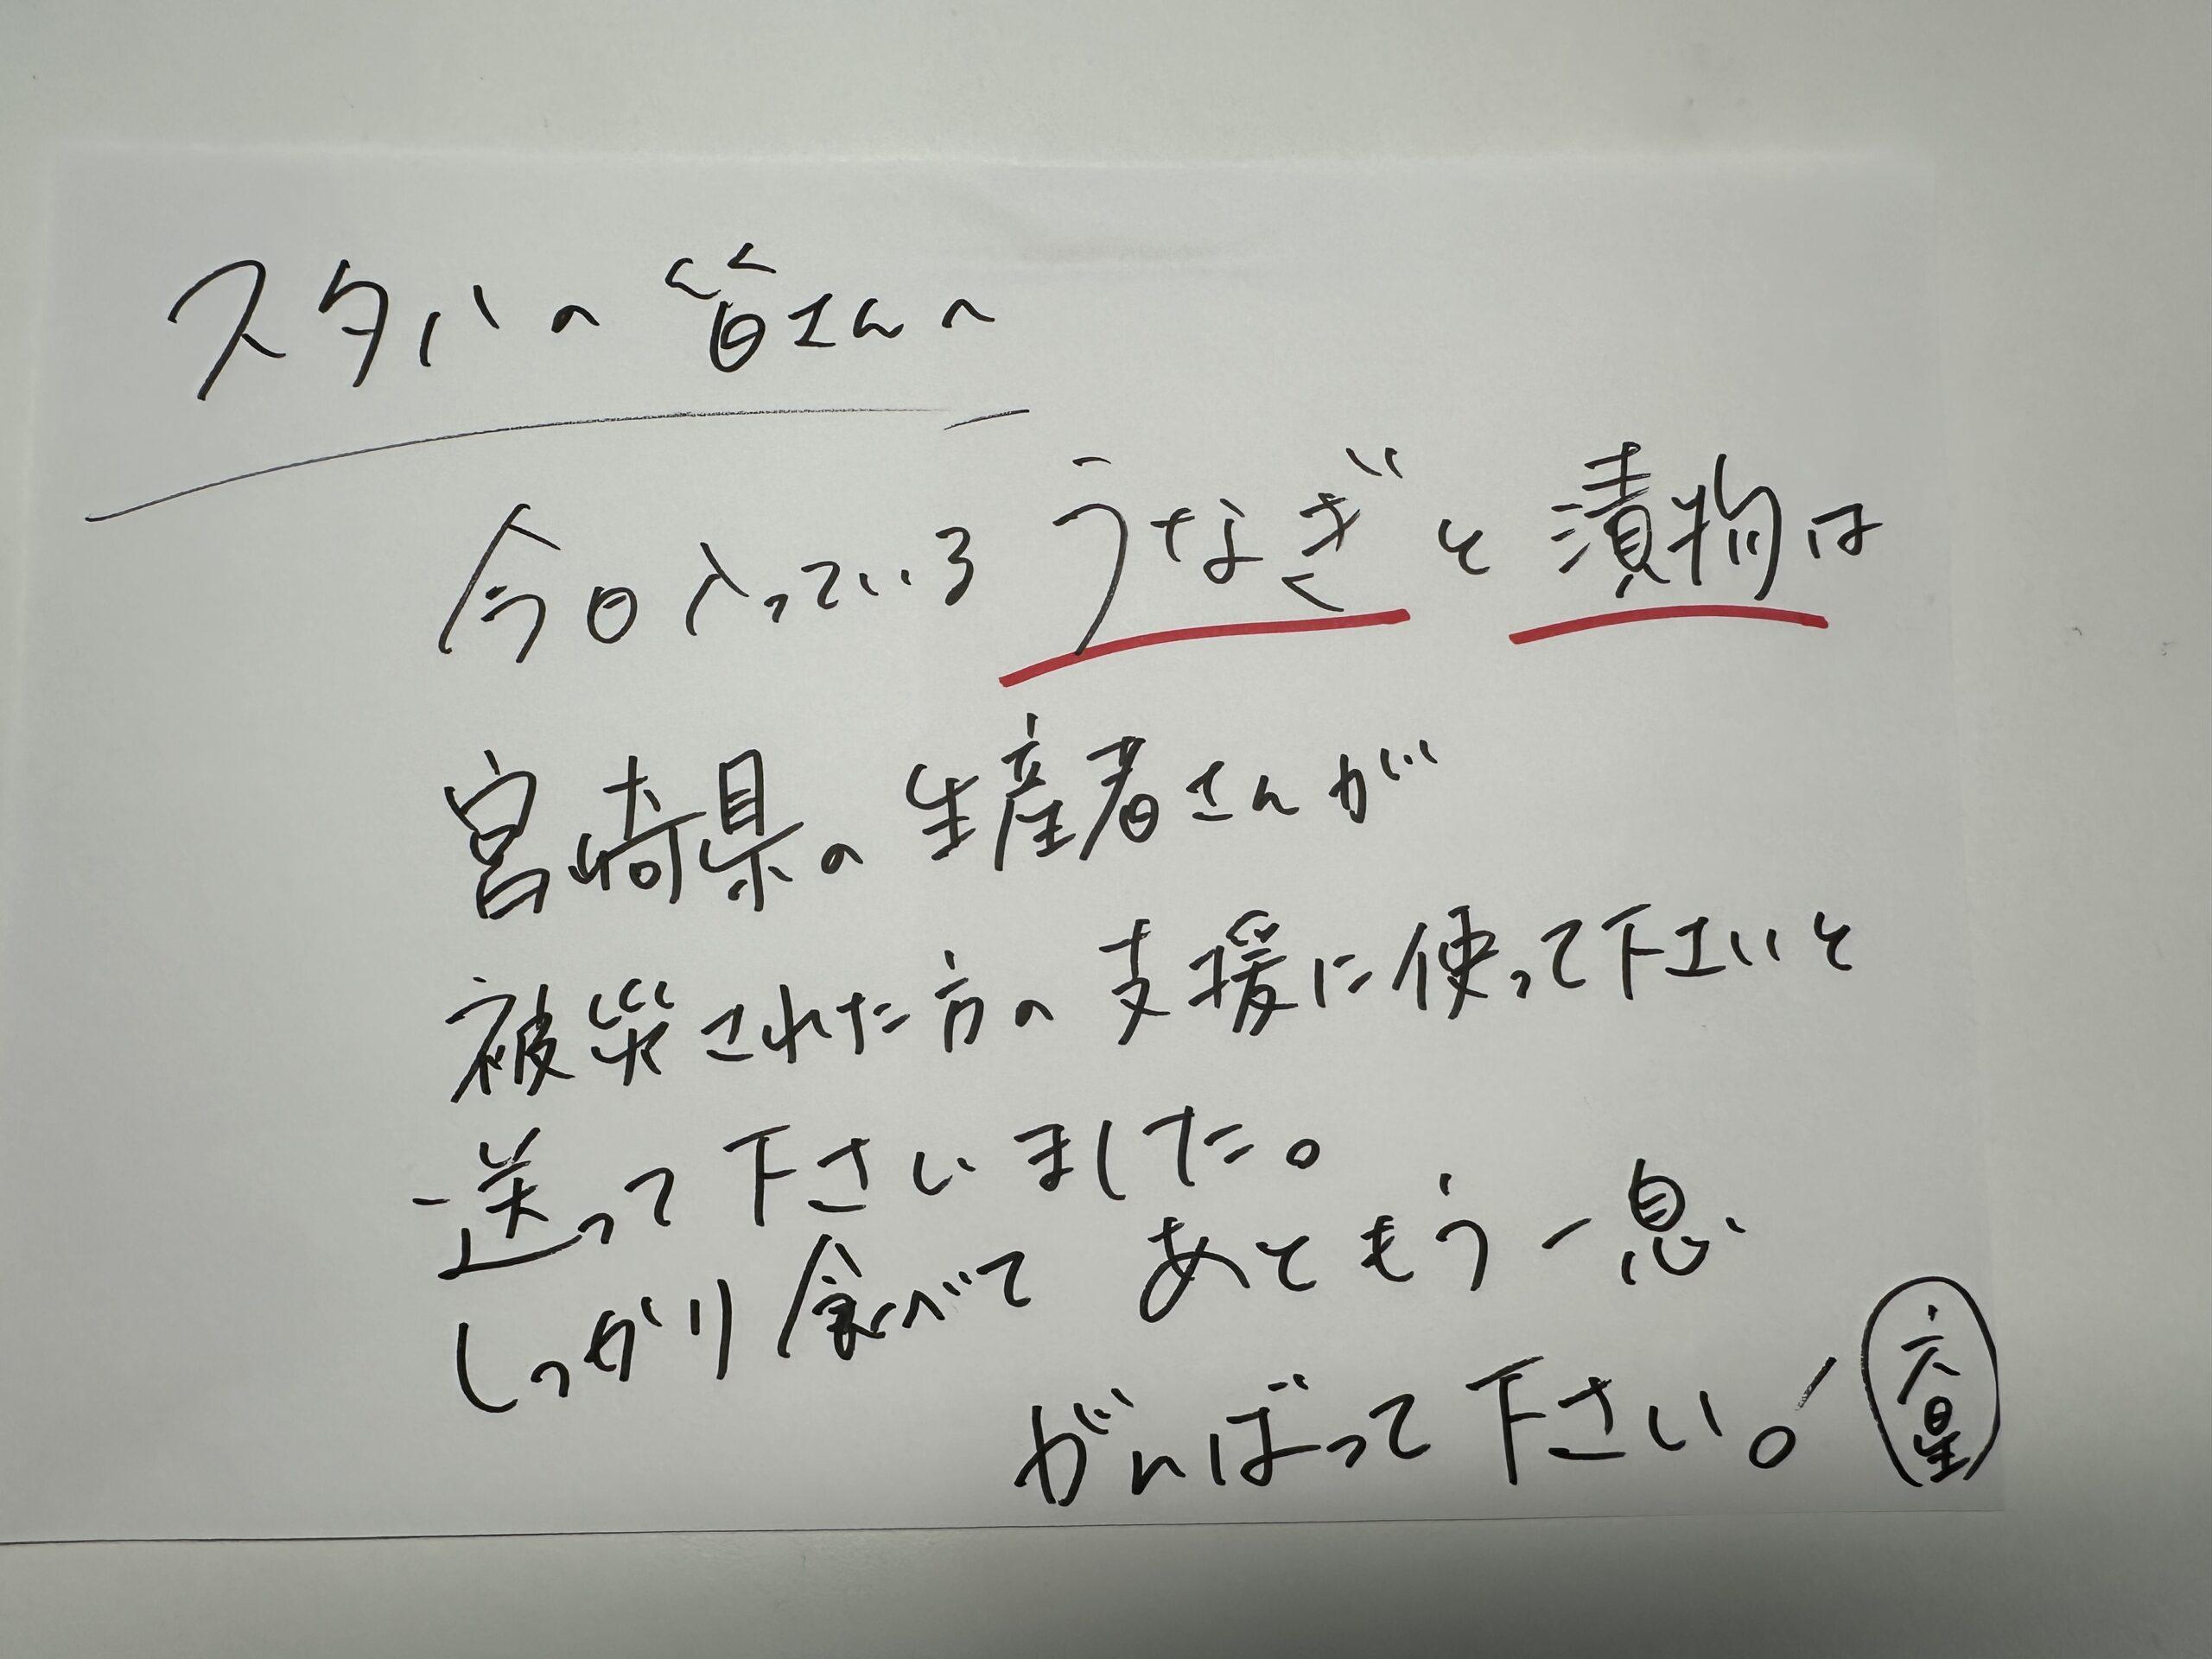 スタバの皆さんへ
今日入っている うなぎ と 漬物は
宮崎県の生産者さんが
被災された方の支援に使って下さいと
送って下さいました。
しっかり食べて あともう一息
がんばって下さい。
六星